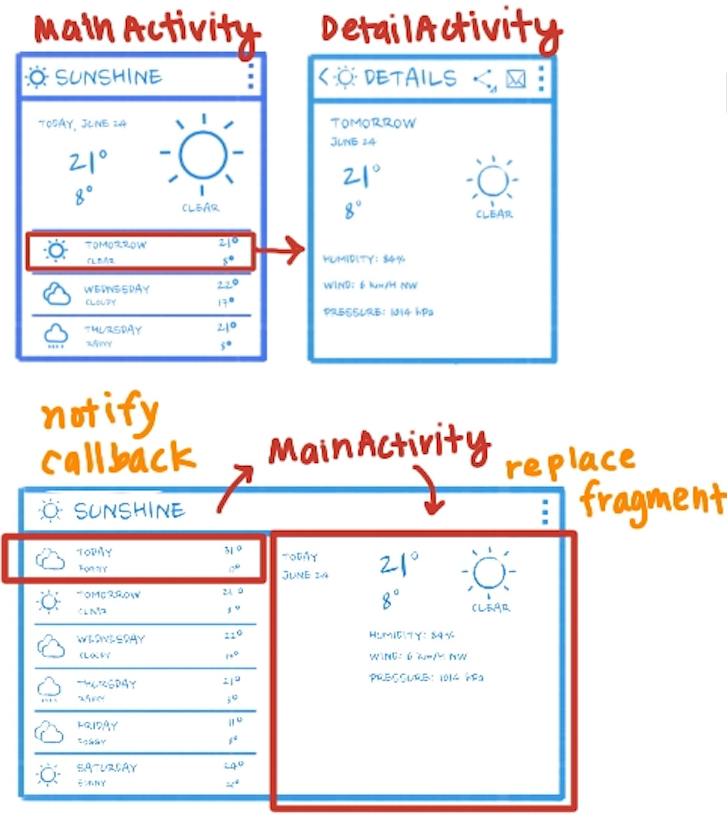 MainActivity
SUNSHINE
TODAY, JUNE 24
21°
8°
CLEAR
TOMORROW 21°
CLEAR 8°
WEDNESDAY 22°
CLOUDY 17°
THURSDAY 21°
RAINY 8°
DetailActivity
< DETAILS
TOMORROW
JUNE 24
21°
8°
CLEAR
HUMIDITY: 84%
WIND: 6 KM/H NW
PRESSURE: 1014 hPa
notify
callback
MainActivity
replace
fragment
SUNSHINE
TODAY 31°
TOMORROW
CLEAR 8°
WEDNESDAY 22°
CLOUDY
THURSDAY 21°
RAINY
FRIDAY 11°
FOGGY 8°
SATURDAY 24°
SUNNY
TODAY
JUNE 24
21°
8°
CLEAR
HUMIDITY: 84%
WIND: 6 KM/H NW
PRESSURE: 1014 hPa